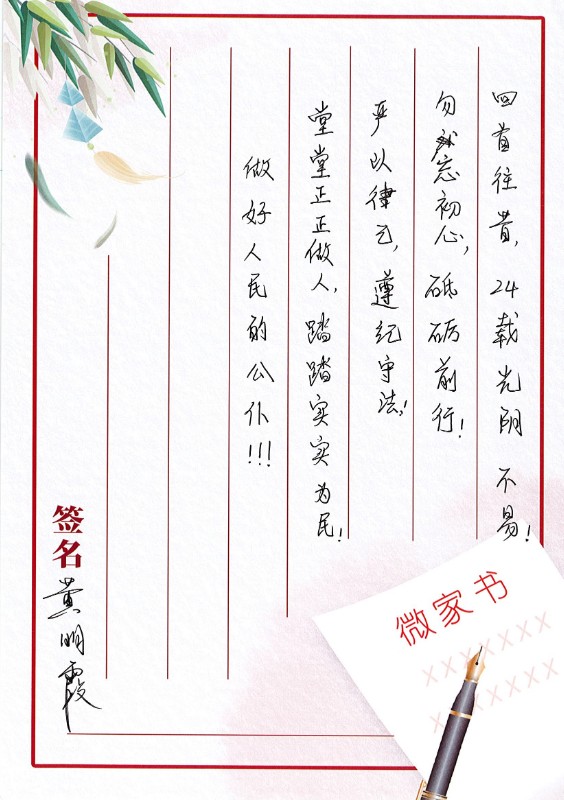 四首往昔，24载光阴不易！
勿忘初心，砥砺前行！
严以律己，遵纪守法！
堂堂正正做人，踏踏实实为民！
做好人民的公仆!!!
签名
黄明霞
微家书
XXXXXXX
XXXXXXX